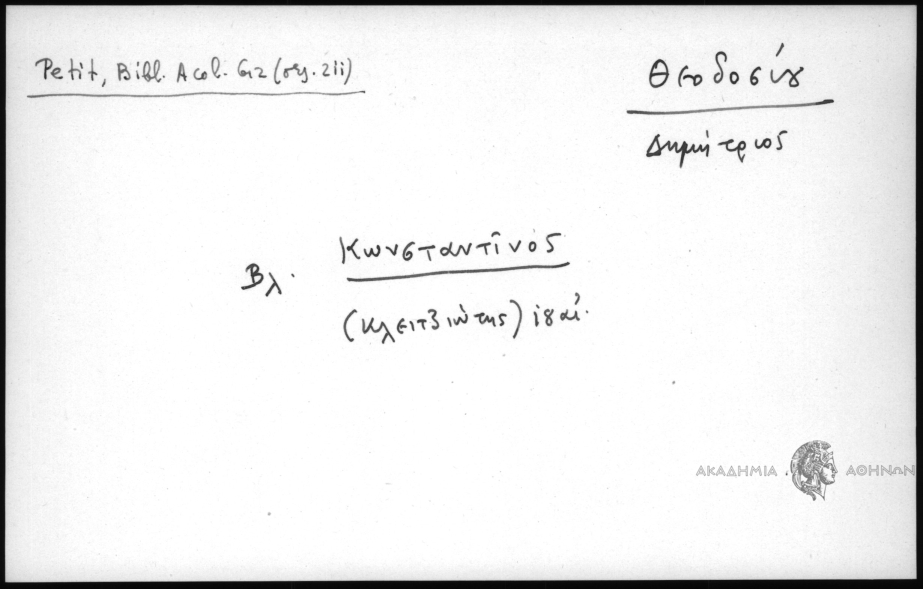 Petit, Bibl. Acol. Gr (σελ. 211)
Θεοδοσίου
Δημήτριος
Βλ. Κωνσταντῖνος
(Κλειτζιώτης)
ΑΚΑΔΗΜΙΑ ΑΘΗΝΩΝ